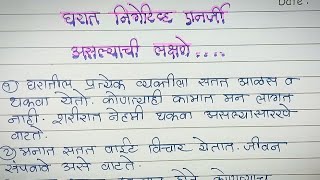 Date:
घरात निगेटिव्ह एनर्जी
असल्याची लक्षणे....
१) घरातील प्रत्येक व्यक्तीला सतत आळस व
थकवा येतो. कोणत्याही कामात मन लागत
नाही. शरीरात नेहमी थकवा असल्यासारखे
वाटते.
२) मनात सतत वाईट विचार येतात. जीवन
संपवावे असे वाटते.